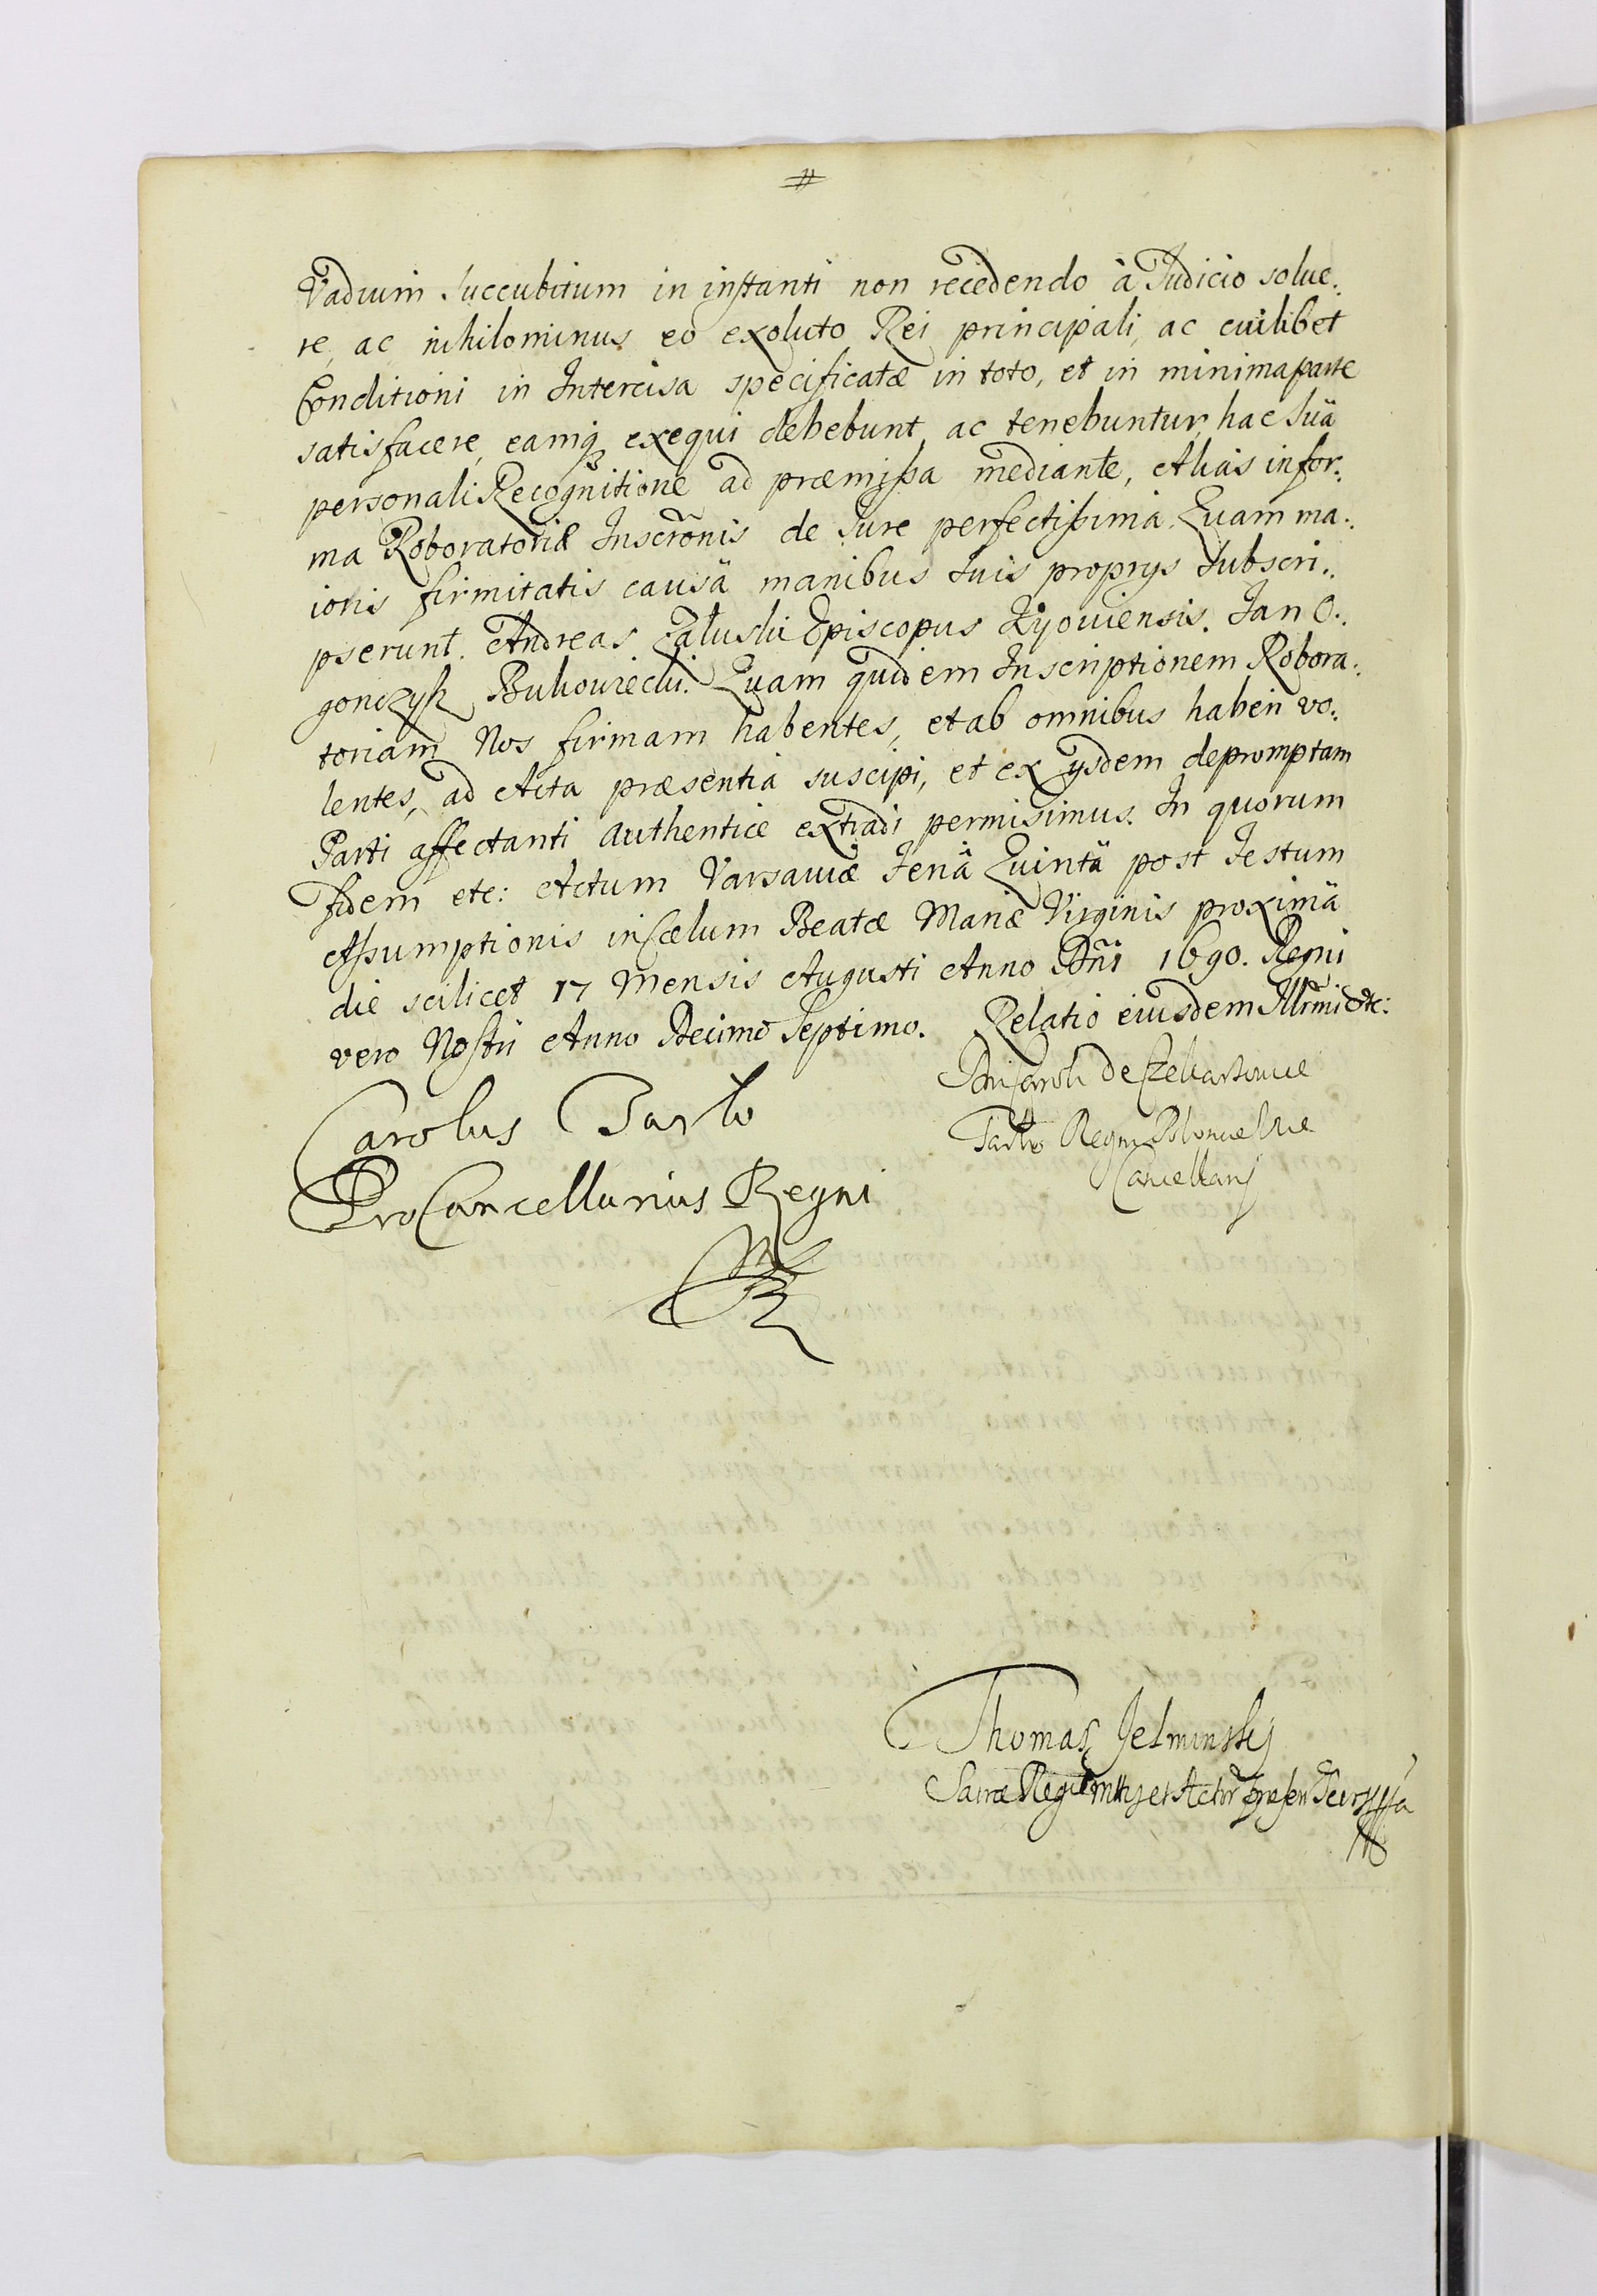 Vadium succubitum in instanti non recedendo à Judicio solue:
re, ac nihilominus eo exoluto Rei principali, ac cuilibet
Conditioni in Intercisa specificatæ in toto, et in minima parte
satisfacere, eamq3 exequi debebunt, ac tenebuntur, hac suâ
personali Recognitione ad præmißa mediante, Alias in for:
ma Roboratoriæ Inscrõnis de Jure perfectißima. Quam ma:
ioris firmitatis causâ manibus suis proprys subscri:
pserunt. Andreas Załuski Episcopus Kyouiensis. Jan O:
gonczyk Bukouiecki. Quam quidem Inscriptionem Robora:
toriam Nos firmam habentes, et ab omnibus haberi vo:
lentes, ad Acta præsentia suscipi, et ex ysdem depromptam
Parti affectanti authentice extradi permisimus. In quorum
fidem etc: Actum Varsauiæ Feriâ Quintâ post Festum
Aßumptionis in Cælum Beatæ Mariæ Virginis proximâ
die scilicet 17 Mensis Augusti Anno Dñi 1690. Regni
vero Nostri Anno Decimo Septimo.
Relatio eiusdem Illr̃mi etc:
Dni Caroli de Czekarzouice
Tarło Regni Poloniæ Vice
Cancellarij
Carolus Tarło
ProCancellarius Regni
Thomas Jelminskij
Sacræ Regiæ Mttis et Actor præsen